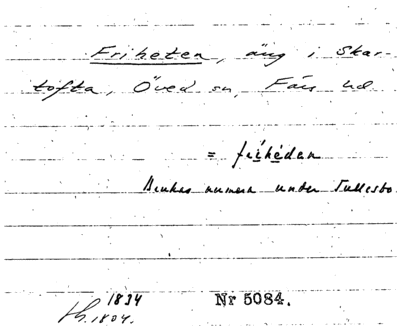 Friheten, äng i Skar-
tofta, Öved sn, Färs hd
= frihédan
Brukas numera under Tullesbo
1834
1804.
Nr 5084.